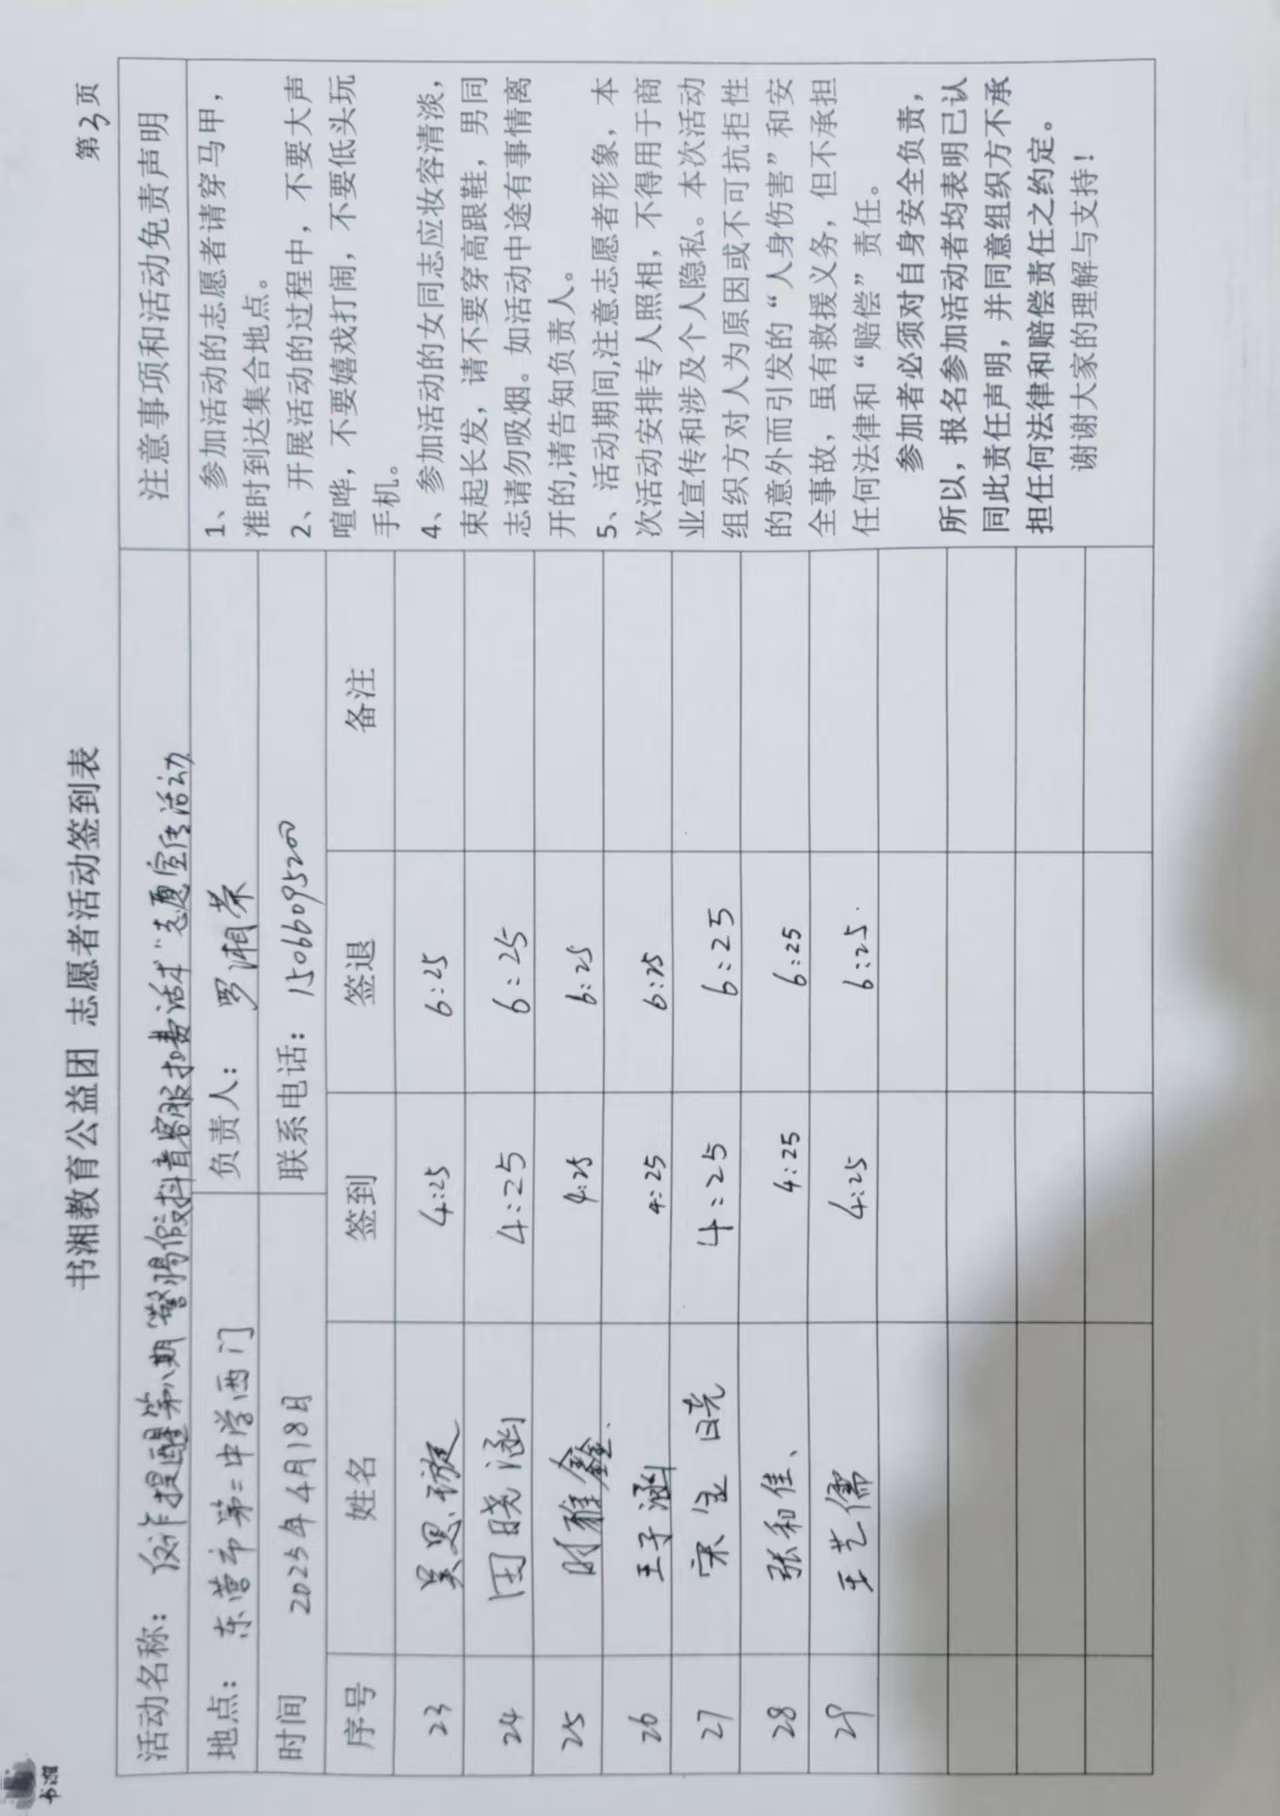 书湘
书湘教育公益团 志愿者活动签到表
第3页
活动名称：反诈提醒第八期"警惕假抖音客服扣费话术"志愿宣传活动
地点：东营市第二中学西门 负责人：罗湘荣
时间 2025年4月18日 联系电话：15066095200
序号 姓名 签到 签退 备注
23 吴思璇 4:25 6:25
24 田晓涵 4:25 6:25
25 时雅鑫 4:25 6:25
26 王子涵 4:25 6:25
27 宋 4:25 6:25
28 张和佳 4:25 6:25
29 王艺儒 4:25 6:25
注意事项和活动免责声明
1、参加活动的志愿者请穿马甲，
准时到达集合地点。
2、开展活动的过程中，不要大声
喧哗，不要嬉戏打闹，不要低头玩
手机。
4、参加活动的女同志应妆容清淡，
束起长发，请不要穿高跟鞋，男同
志请勿吸烟。如活动中途有事情离
开的,请告知负责人。
5、活动期间,注意志愿者形象，本
次活动安排专人照相，不得用于商
业宣传和涉及个人隐私。本次活动
组织方对人为原因或不可抗拒性
的意外而引发的“人身伤害”和安
全事故，虽有救援义务，但不承担
任何法律和“赔偿”责任。
参加者必须对自身安全负责，
所以，报名参加活动者均表明已认
同此责任声明，并同意组织方不承
担任何法律和赔偿责任之约定。
谢谢大家的理解与支持！